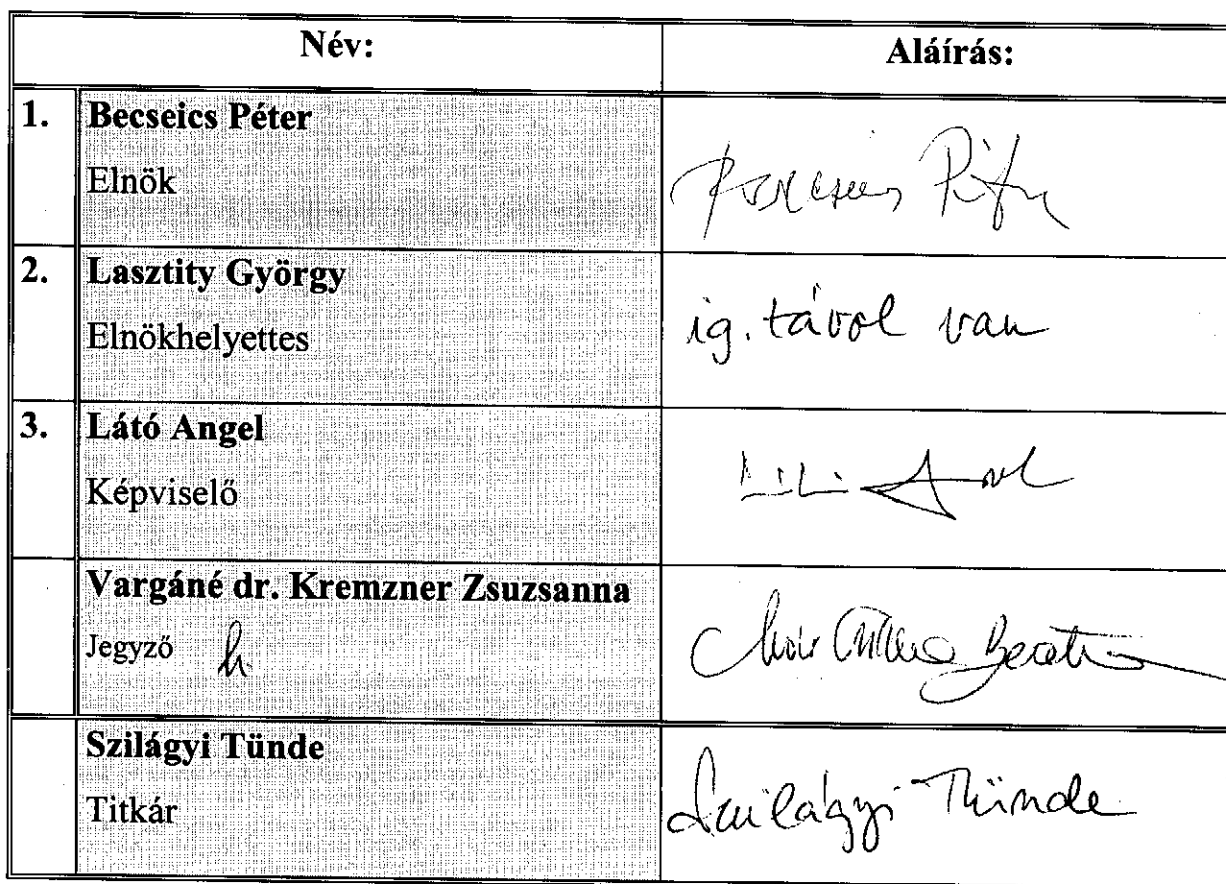 Név: Aláírás:
1. Becseics Péter
Elnök
2. Lasztity György
Elnökhelyettes
ig. távol van
3. Látó Angel
Képviselő
Vargáné dr. Kremzner Zsuzsanna
Jegyző h.
Szilágyi Tünde
Titkár
Szilágyi Tünde